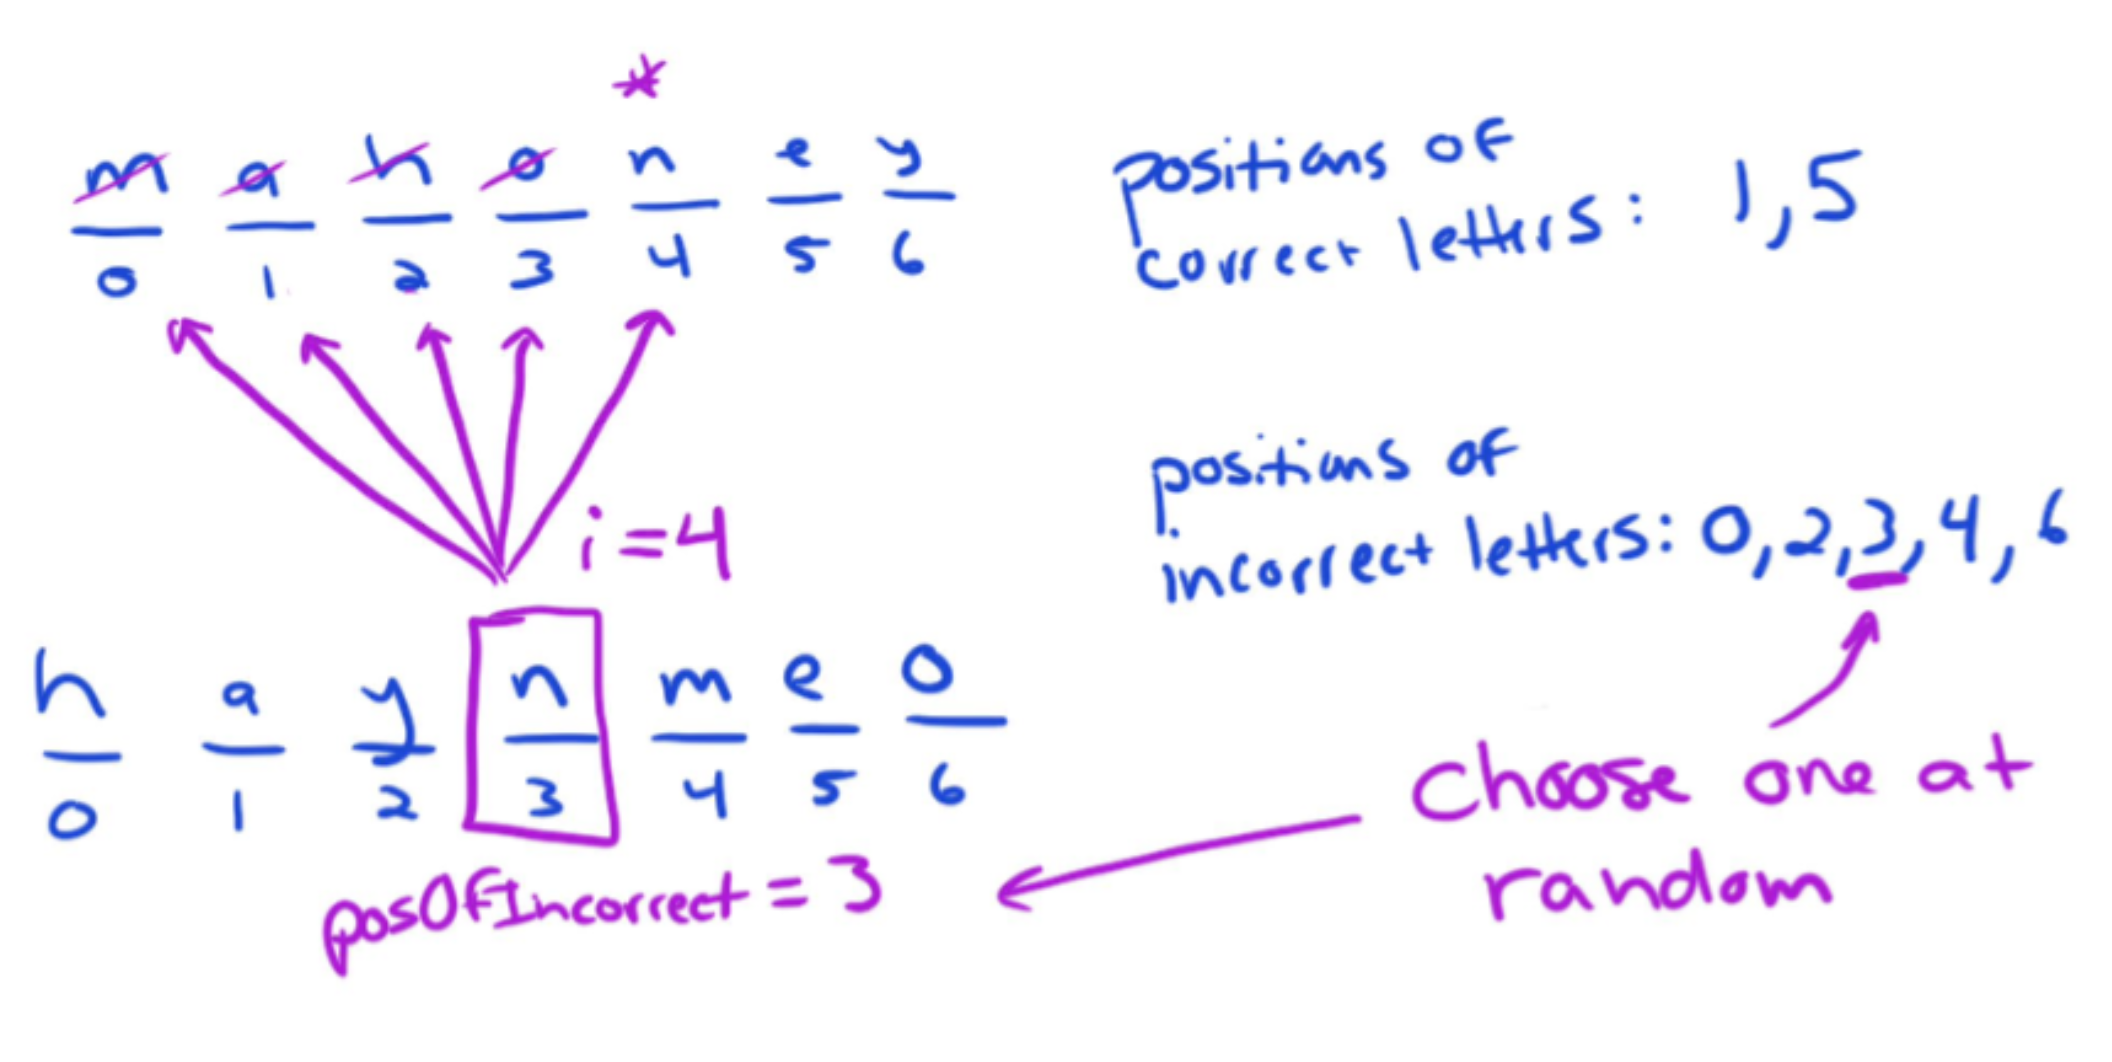 *
m a h o n e y
0 1 2 3 4 5 6
positions of
correct letters: 1,5
positions of
incorrect letters: 0,2,3,4,6
i=4
h a y n m e o
0 1 2 3 4 5 6
posOfIncorrect = 3
choose one at
random